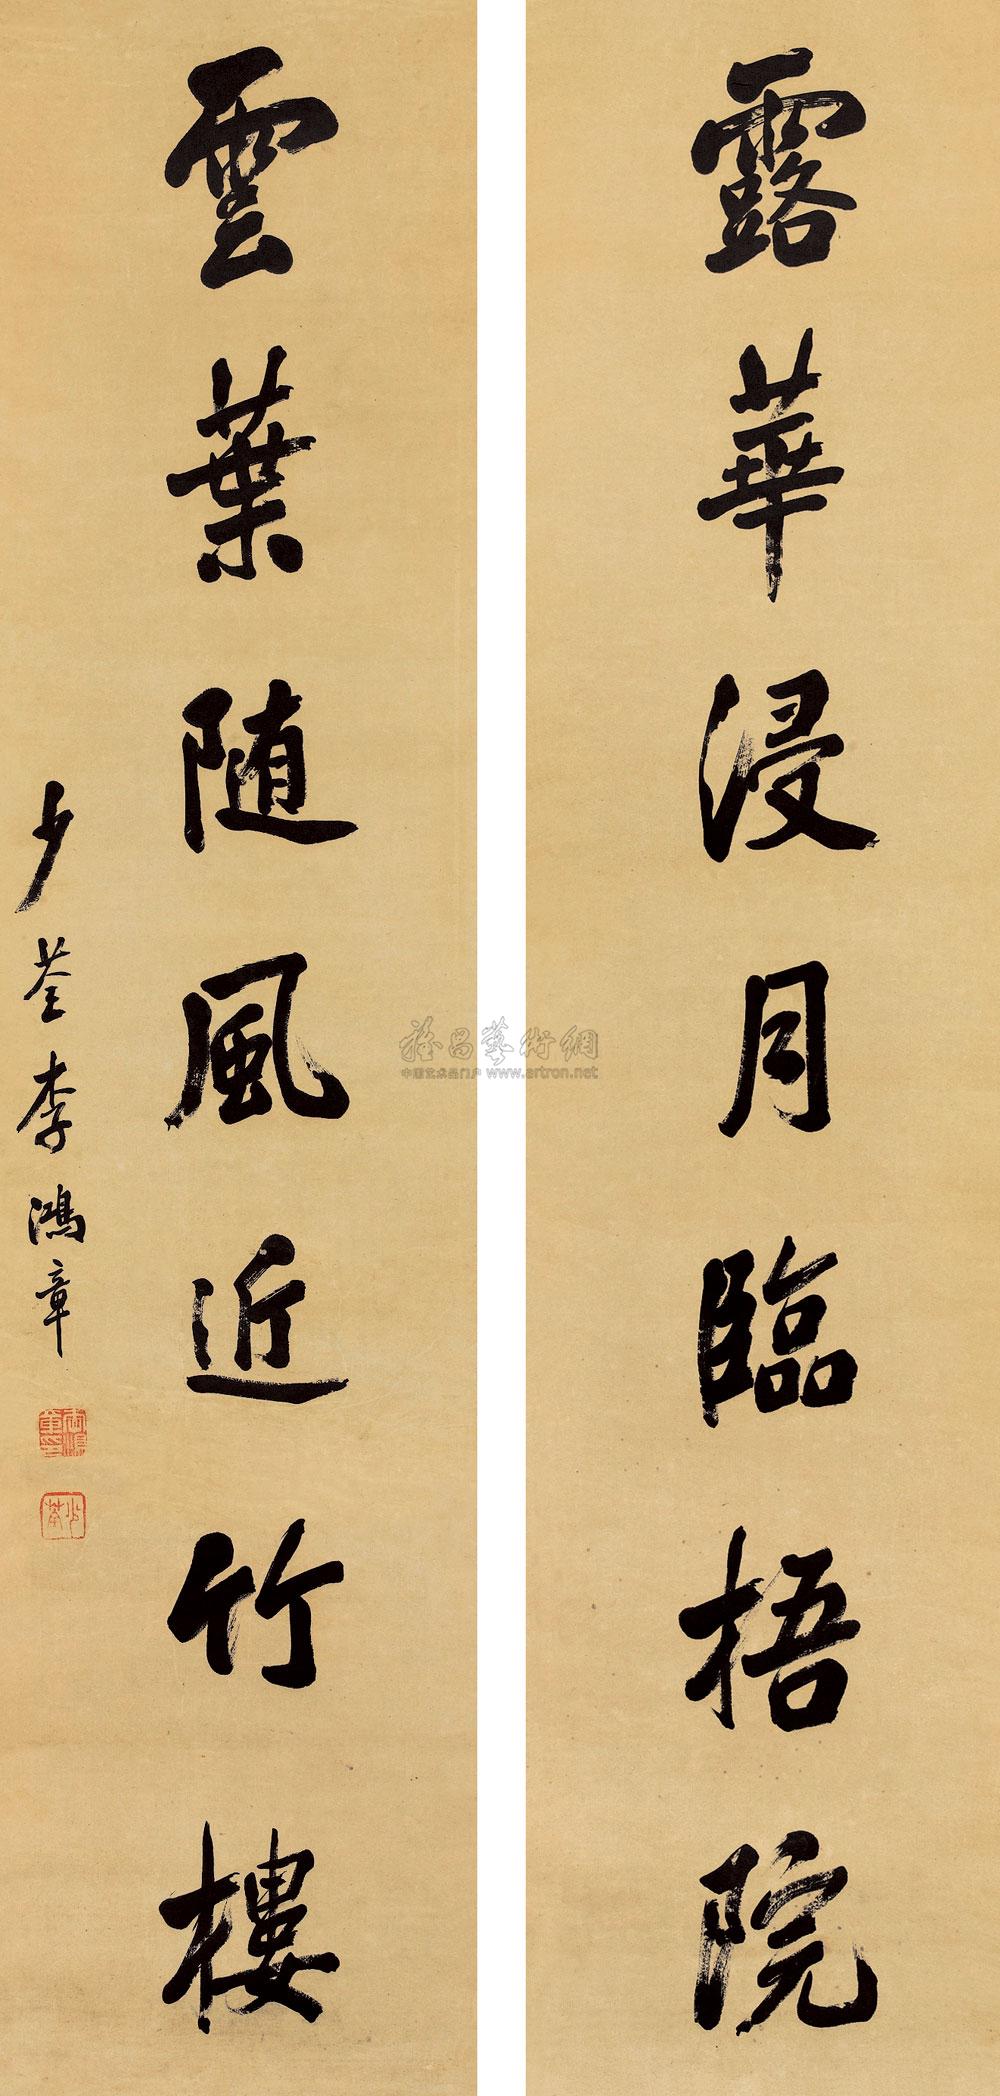 露華浸月臨梧院
雲葉随風近竹樓
少荃李鴻章
雅昌藝術網
中国艺术品门户 www.artron.net
少荃